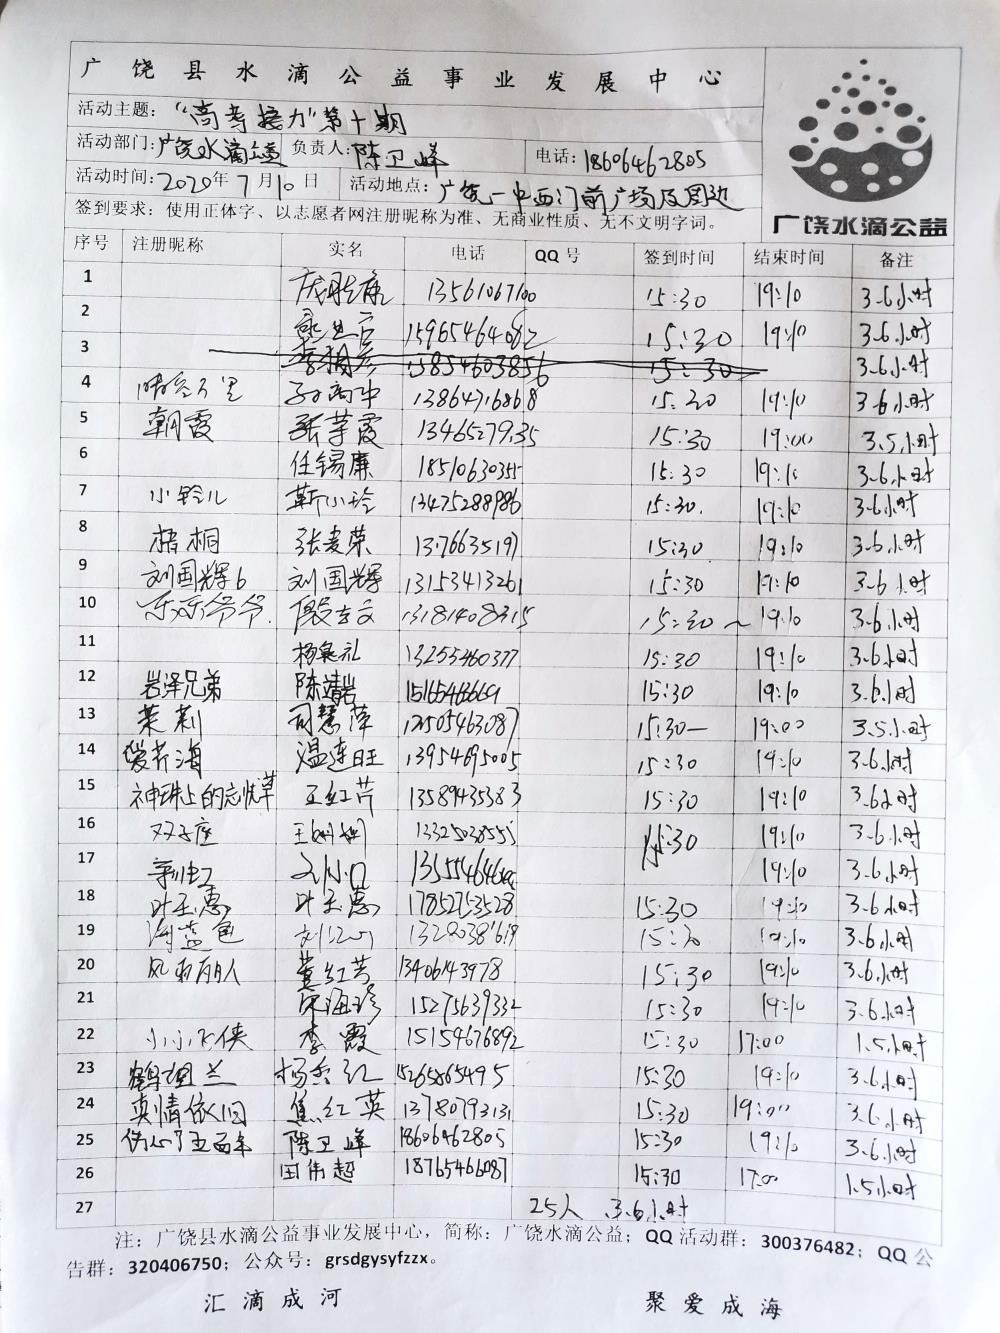 广饶县水滴公益事业发展中心
活动主题：“高考接力”第十期
活动部门：广饶水滴公益 负责人：陈卫峰 电话：18606462805
活动时间：2020年7月10日 活动地点：广饶一中西门前广场及周边
签到要求：使用正体字、以志愿者网注册昵称为准、无商业性质、无不文明字词。
广饶水滴公益
序号 注册昵称 实名 电话 QQ号 签到时间 结束时间 备注
1 13561067100 15:30 19:10 3.6小时
2 15965464082 15:30 19:10 3.6小时
3 13854603856 15:30 3.6小时
4 13864716868 15:30 19:10 3.6小时
5 朝霞 张芋霞 13465279135 15:30 19:00 3.5小时
6 任锡廉 18510630355 15:30 19:10 3.6小时
7 小铃儿 靳小玲 13475288986 15:30. 19:10 3.6小时
8 梧桐 张麦荣 15:30 19:10 3.6小时
9 刘国辉6 刘国辉 13153413261 15:30 19:10 3.6小时
10 乐乐爷爷. 13181408315 15:30~ 19:10 3.6小时
11 13255460377 15:30 19:10 3.6小时
12 岩泽兄弟 陈靖岩 15165466669 15:30 19:10 3.6小时
13 茉莉 司慧萍 12505463087 15:30— 19:00 3.5小时
14 温连旺 13954695005 15:30 19:10 3.6小时
15 神珠上的忘忧草 王红芹 13589435383 15:30 19:10 3.6小时
16 双子座 王姗姗 13325038555 15:30 19:10 3.6小时
17 19:10 3.6小时
18 叶玉惠 叶玉惠 17852753528 15:30 19:10 3.6小时
19 海蓝色 15:30 19:10 3.6小时
20 风雨丽人 黄红芳 13406143978 15:30 19:10 3.6小时
21 宋海珍 15275639332 15:30 19:10 3.6小时
22 小小飞侠 李霞 15154676892 15:30 17:00 1.5小时
23 鹤望兰 杨委红 15265865495 15:30 19:10 3.6小时
24 真情依旧 焦红英 13780793131 15:30 19:00 3.6小时
25 陈卫峰 18606462805 15:30 19:10 3.6小时
26 田伟超 18765466087 15:30 17:00 1.5小时
27 25人 3.6小时
注：广饶县水滴公益事业发展中心，简称：广饶水滴公益；QQ活动群：300376482；QQ公
告群：320406750；公众号：grsdgysyfzzx。
汇滴成河 聚爱成海